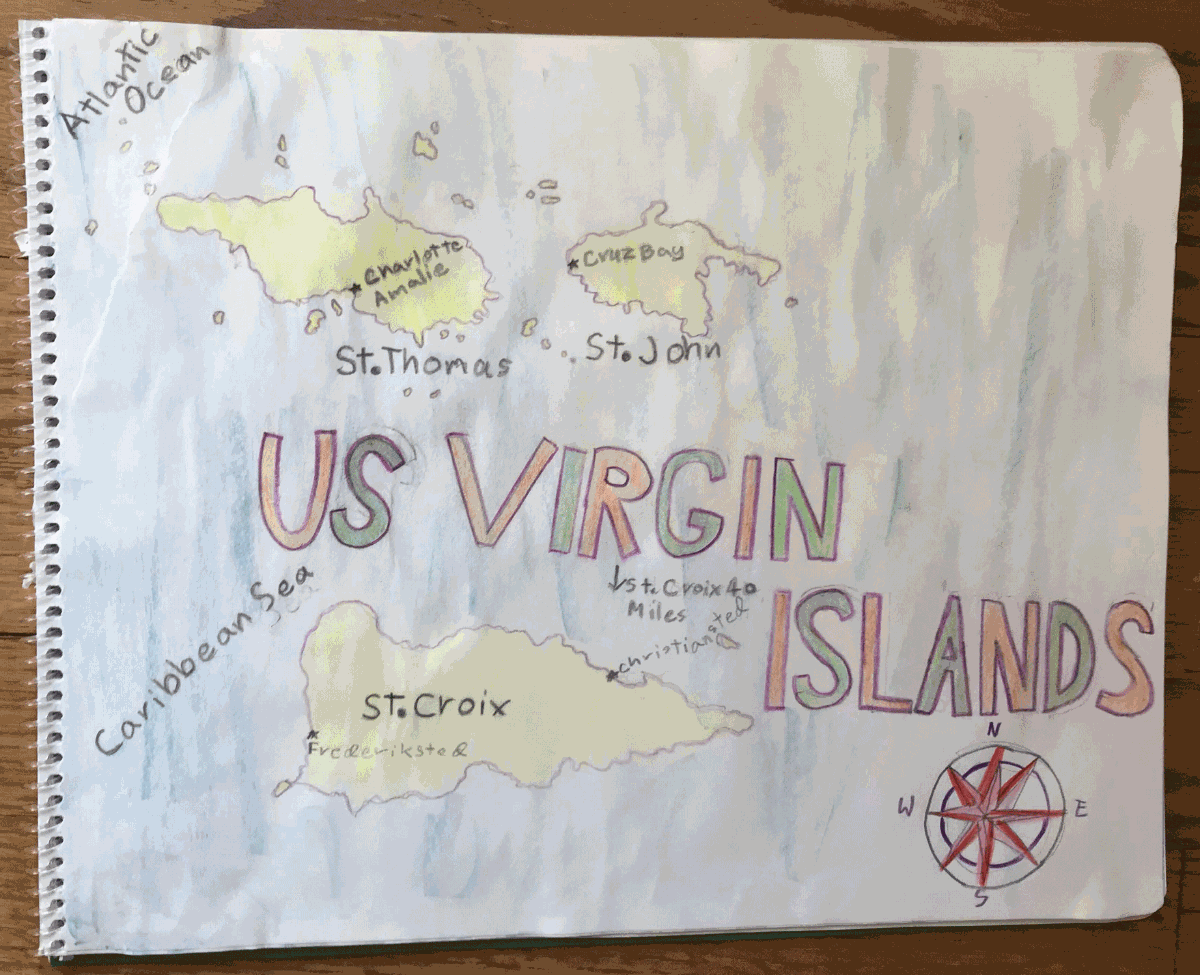 Atlantic
Ocean
Charlotte
Amalie
Cruz Bay
St. Thomas
St. John
US VIRGIN
ISLANDS
↓St. Croix 40
Miles
Caribbean Sea
christiansted
St. Croix
Frederiksted
N
W
E
S